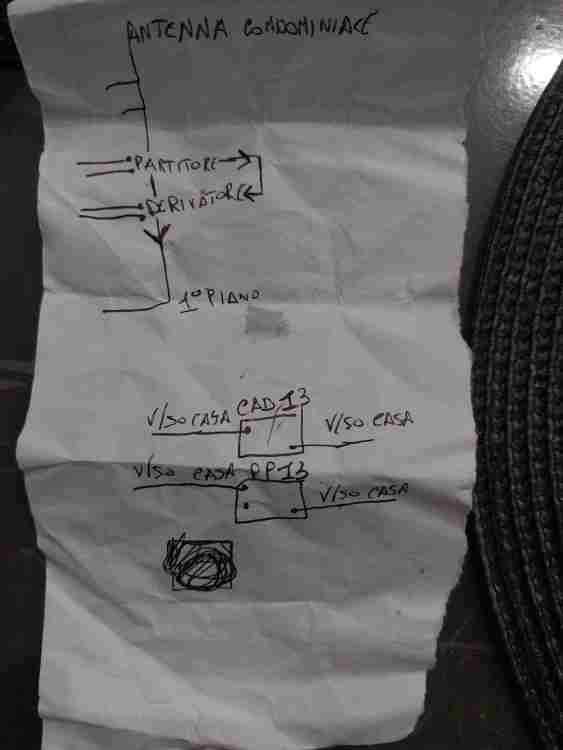 ANTENNA CONDOMINIALE
PARTITORE
DERIVATORE
1º PIANO
V/SO CASA CAD 13 V/SO CASA
V/SO CASA PP13 V/SO CASA